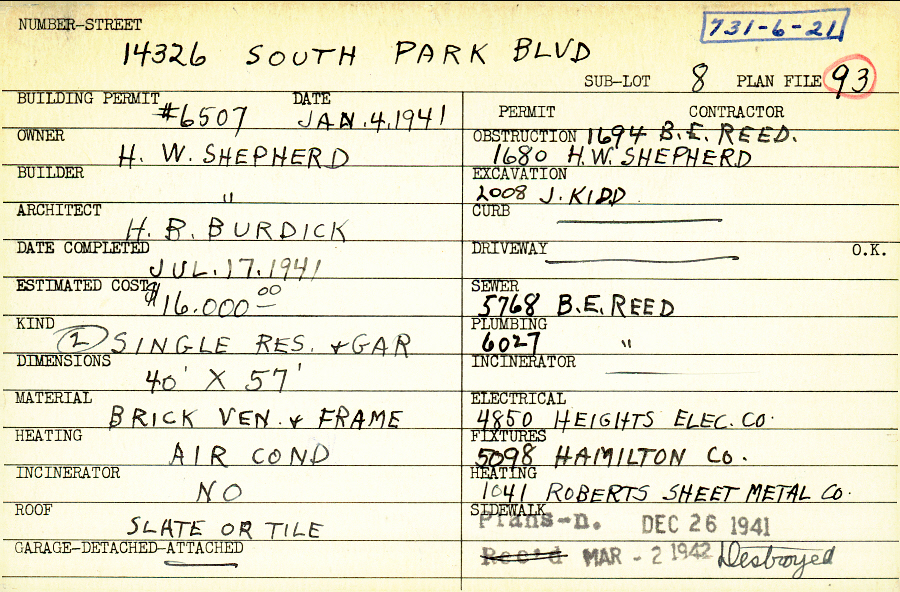 NUMBER-STREET
731-6-21
14326 SOUTH PARK BLVD
SUB-LOT 8 PLAN FILE 93
BUILDING PERMIT #6507 DATE JAN.4.1941
OWNER H. W. SHEPHERD
BUILDER "
ARCHITECT H. B. BURDICK
DATE COMPLETED JUL.17.1941
ESTIMATED COST $16.000 00
KIND 2 SINGLE RES. + GAR
DIMENSIONS 40' X 57'
MATERIAL BRICK VEN. + FRAME
HEATING AIR COND
INCINERATOR NO
ROOF SLATE OR TILE
GARAGE-DETACHED-ATTACHED
PERMIT CONTRACTOR
OBSTRUCTION 1694 B.E. REED.
1680 H.W. SHEPHERD
EXCAVATION
2008 J. KIDD
CURB
DRIVEWAY O.K.
SEWER
5768 B.E. REED
PLUMBING
6027 "
INCINERATOR
ELECTRICAL
4850 HEIGHTS ELEC. CO.
FIXTURES
5098 HAMILTON CO.
HEATING
1041 ROBERTS SHEET METAL CO.
SIDEWALK
Plans-D. DEC 26 1941
Rec'd MAR - 2 1942 Destroyed